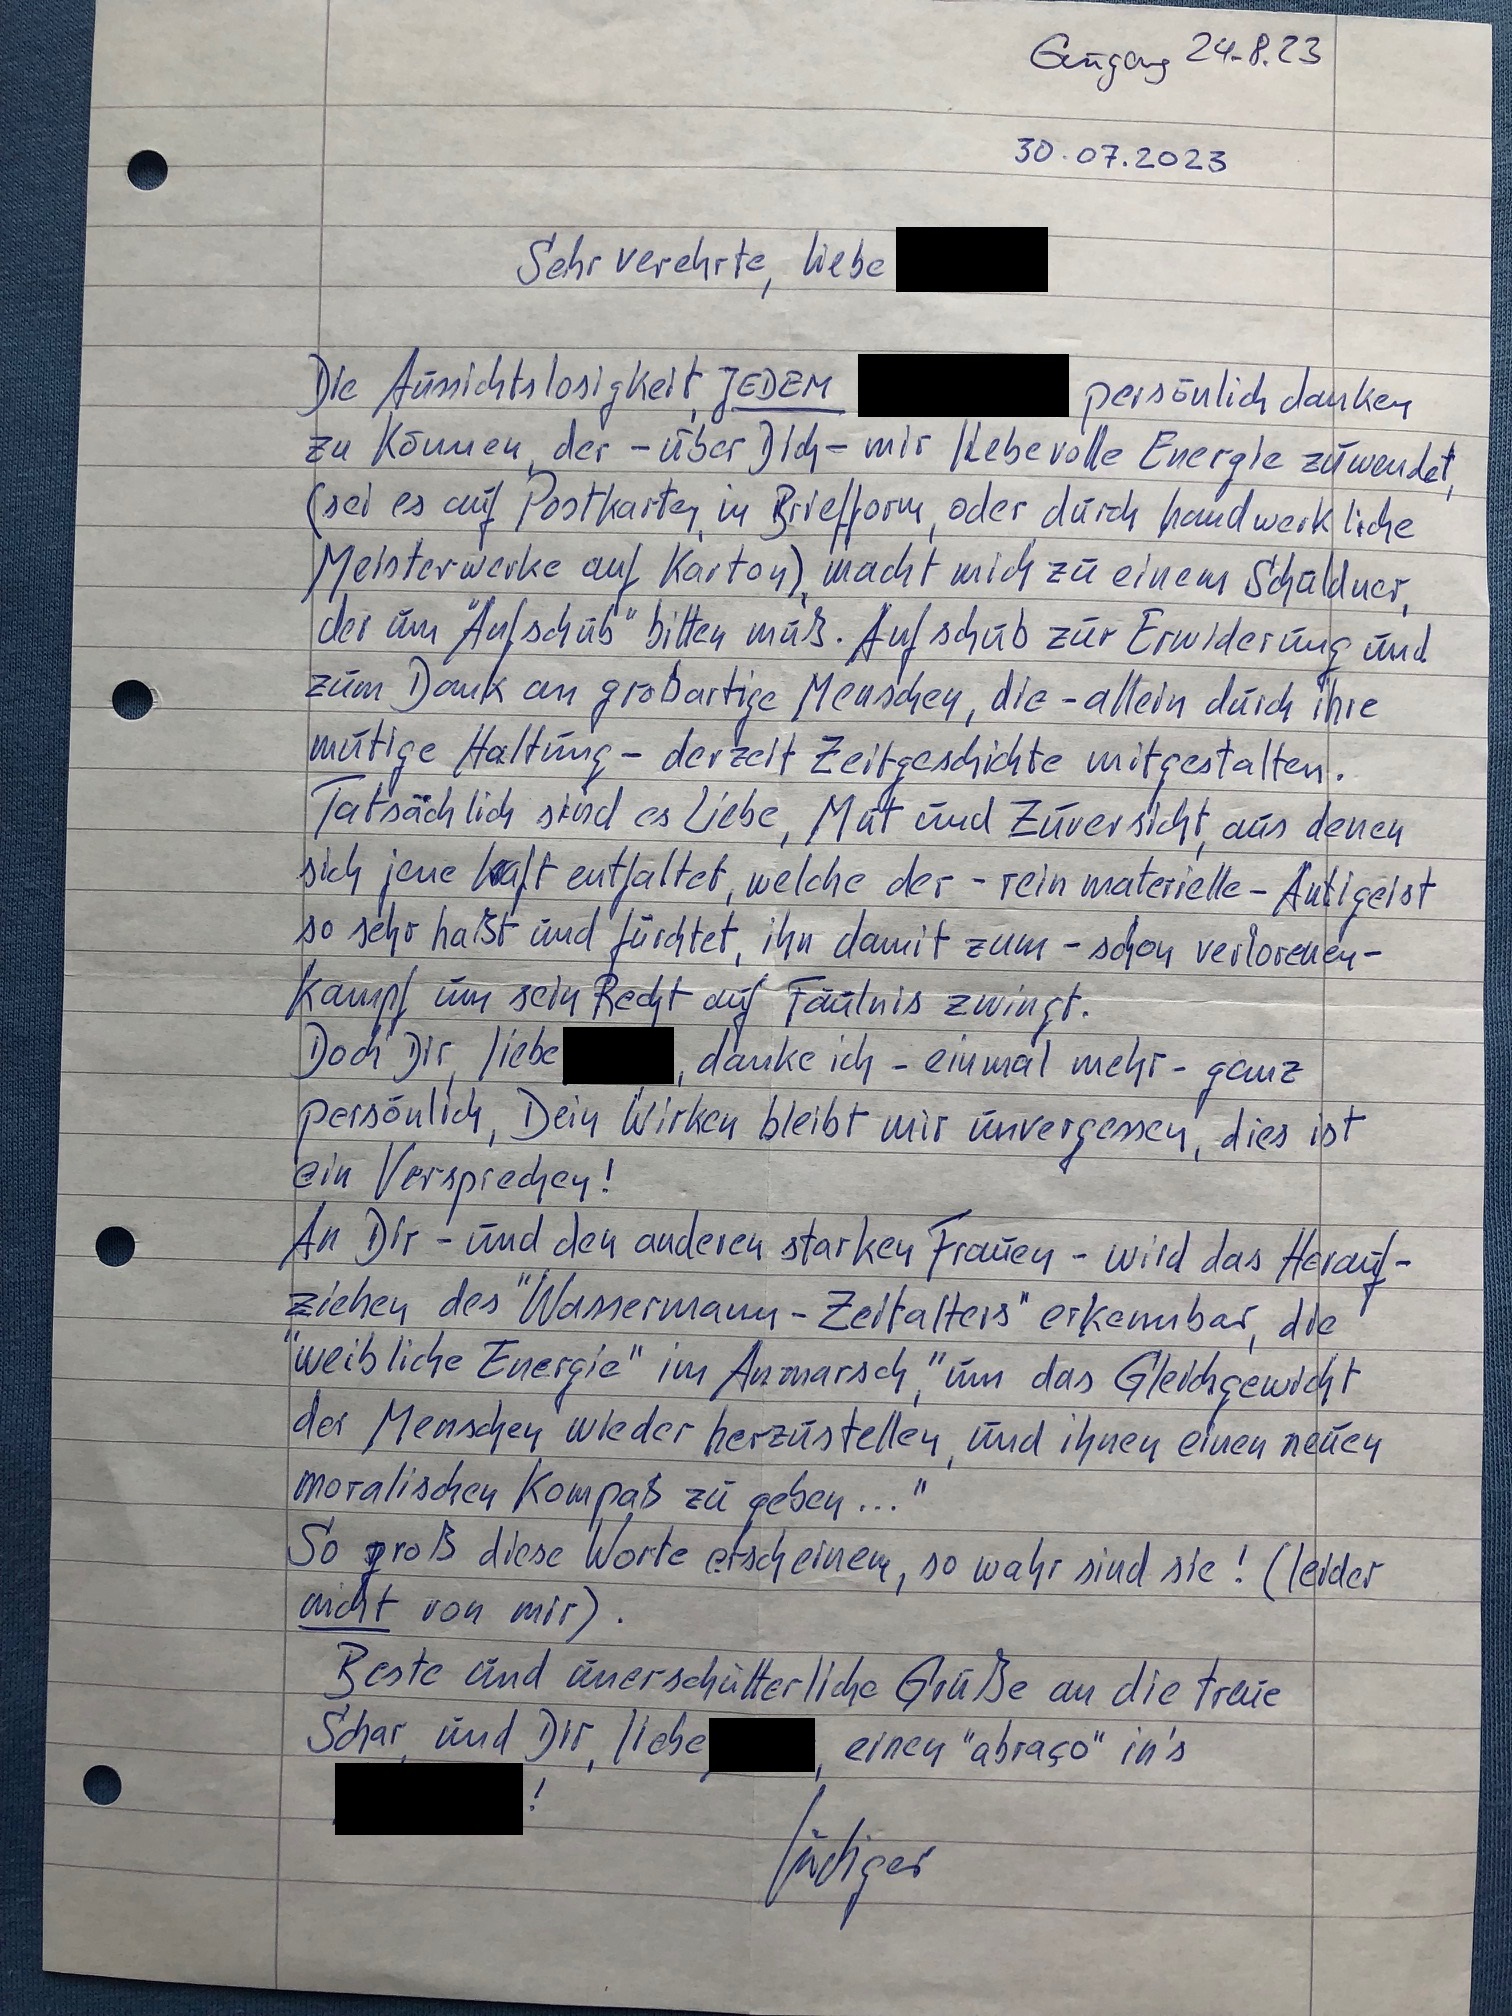 Eingang 24.8.23
30.07.2023
Sehr verehrte, liebe
Die Aussichtslosigkeit, JEDEM persönlich danken
zu können, der - über Dich - mir liebevolle Energie zuwendet,
(sei es auf Postkarten, in Briefform, oder durch handwerkliche
Meisterwerke auf Karton), macht mich zu einem Schuldner,
der um "Aufschub" bitten muß. Aufschub zur Erwiderung und
zum Dank an großartige Menschen, die - allein durch ihre
mutige Haltung - derzeit Zeitgeschichte mitgestalten.
Tatsächlich sind es Liebe, Mut und Zuversicht, aus denen
sich jene Kraft entfaltet, welche der - rein materielle - Antigeist
so sehr haßt und fürchtet, ihn damit zum - schon verlorenen -
Kampf um sein Recht auf Fäulnis zwingt.
Doch Dir, liebe , danke ich - einmal mehr - ganz
persönlich, Dein Wirken bleibt mir unvergessen, dies ist
ein Versprechen!
An Dir - und den anderen starken Frauen - wird das Herauf-
ziehen des "Wassermann-Zeitalters" erkennbar, die
"weibliche Energie" im Anmarsch, "um das Gleichgewicht
der Menschen wieder herzustellen, und ihnen einen neuen
moralischen Kompaß zu geben..."
So groß diese Worte erscheinen, so wahr sind sie! (leider
nicht von mir).
Beste und unerschütterliche Grüße an die treue
Schar, und Dir, liebe , einen "abraço" in's
!